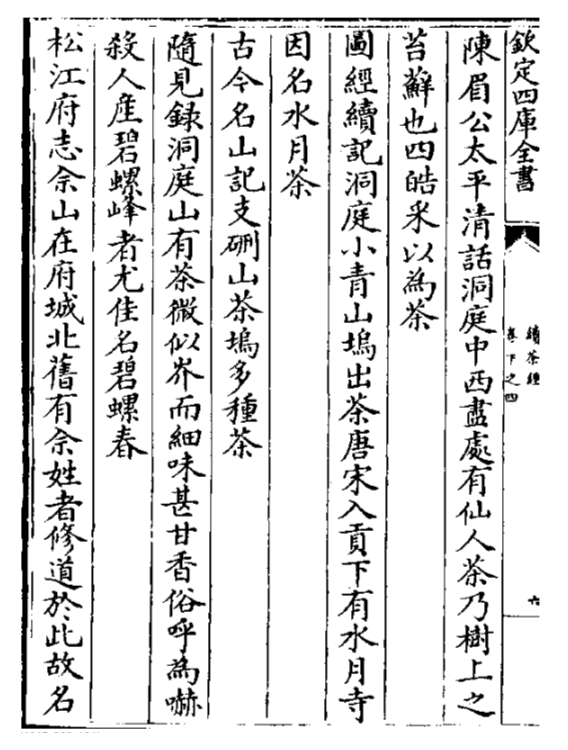 欽定四庫全書
續茶經
卷下之四
六
陳眉公太平清話洞庭中西盡處有仙人茶乃樹上之
苔蘚也四皓采以為茶
圖經續記洞庭小青山塢出茶唐宋入貢下有水月寺
因名水月茶
古今名山記支硎山茶塢多種茶
隨見錄洞庭山有茶微似岕而細味甚甘香俗呼為嚇
殺人産碧螺峰者尤佳名碧螺春
松江府志佘山在府城北舊有佘姓者修道於此故名